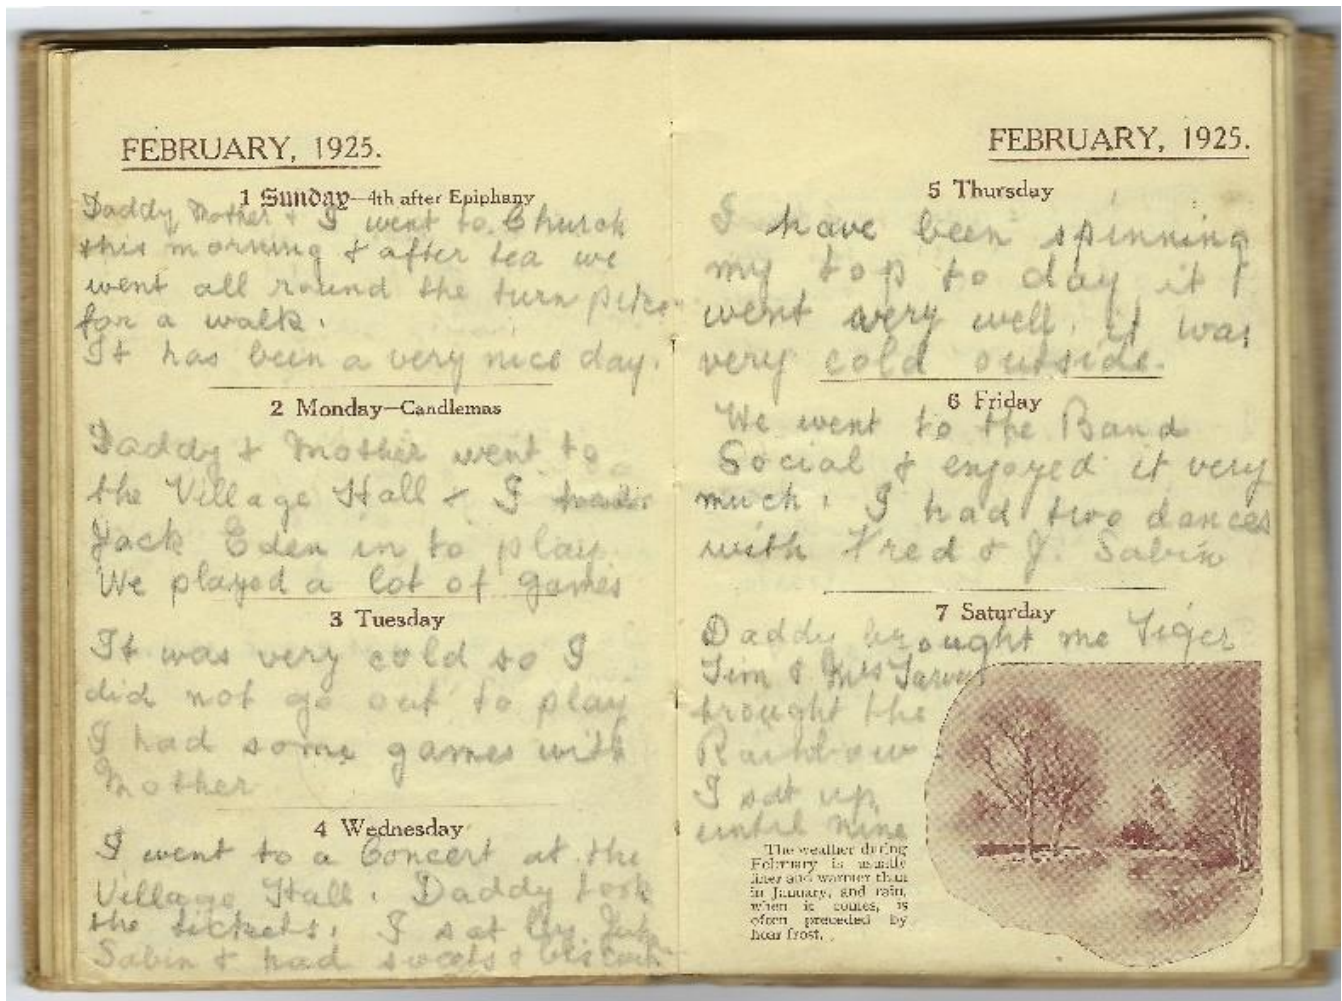 FEBRUARY, 1925.
1 Sunday—4th after Epiphany
Daddy, Mother & I went to Church
this morning & after tea we
went all round the turn pike
for a walk.
It has been a very nice day.
2 Monday—Candlemas
Daddy & Mother went to
the Village Hall & I
Jack Eden in to play
We played a lot of games
3 Tuesday
It was very cold so I
did not go out to play
I had some games with
Mother
4 Wednesday
I went to a Concert at the
Village Hall. Daddy took
the tickets. I sat by
Sabin & had sweets & biscuits
FEBRUARY, 1925.
5 Thursday
I have been spinning
my top to day it
went very well. it was
very cold outside.
6 Friday
We went to the Band
Social & enjoyed it very
much. I had two dances
with Fred & J. Sabin
7 Saturday
Daddy brought me Tiger
Tim & Mrs
brought the
Rainbow
I sat up
until nine
The weather during
February is usually
finer and warmer than
in January, and rain,
when it comes, is
often preceded by
hoar frost.